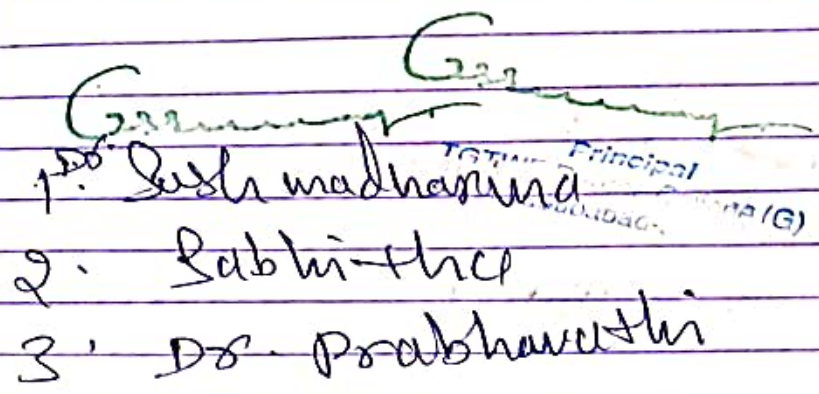 Principal
1. Dr. Sushmadharma
(G)
2. Sabhitha
3. Dr. Prabhavathi